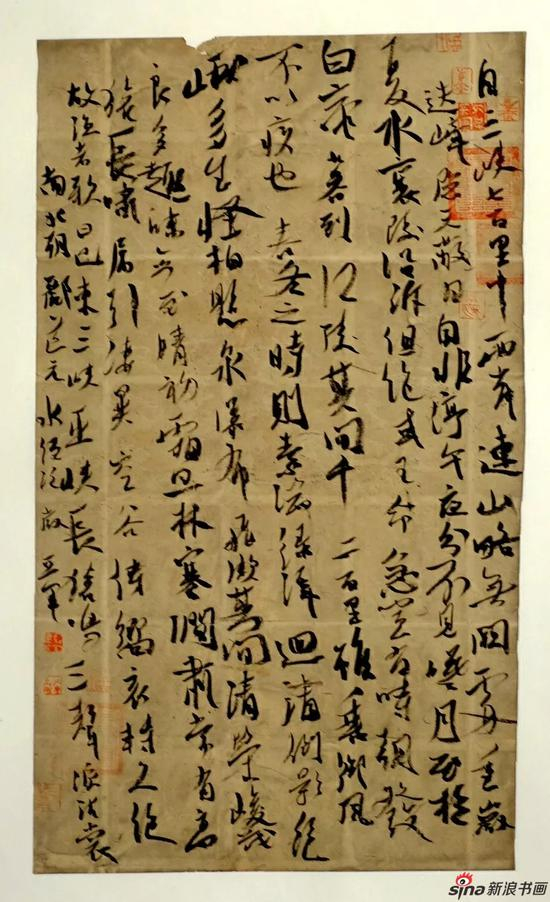 自三峡七百里中兩岸連山略無闕處重巖
迭嶂隐天蔽日自非停午夜分不見曦月至於
夏水襄陵沿泝阻絶或王命急宣有時朝發
白帝暮到江陵其間千二百里雖乘御風
不以疾也春冬之時則素湍緑潭迴清倒影絶
巘多生怪柏懸泉瀑布飛漱其間清榮峻茂
良多趣味每至晴初霜旦林寒澗肅常有高
猿長嘯屬引凄異空谷傳響哀轉久絶
故漁者歌曰巴東三峡巫峡長猿鳴三聲淚沾裳
南北朝酈道元水經注
sina新浪书画